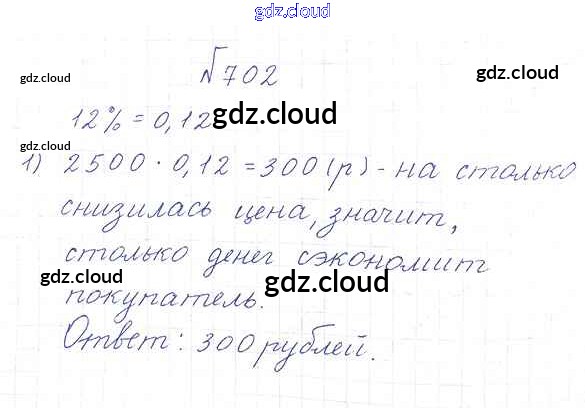 gdz.cloud
gdz.cloud № 702 gdz.cloud
12% = 0,12 gdz.cloud
1) 2500 · 0,12 = 300 (р) - на столько
gdz.cloud gdz.cloud
снизилась цена, значит,
столько денег сэкономит
gdz.cloud gdz.cloud
покупатель.
Ответ: 300 рублей.